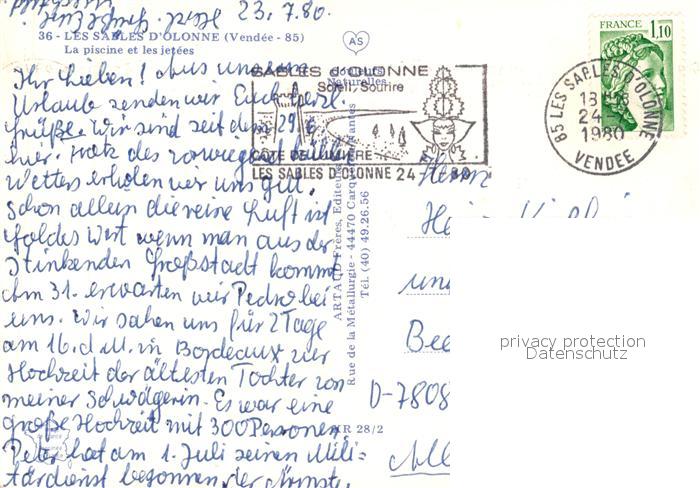 23.7.80.
36 - LES SABLES D'OLONNE (Vendée - 85)
La piscine et les jetées
AS
couleurs
Naturelles
FRANCE
1,10
SABLES d'OLONNE
Soleil, Sourire
COTE DE LUMIERE
LES SABLES D'OLONNE 24 - 7 80
85 LES SABLES D'OLONNE
18H
24 - 7
1980
VENDEE
ARTAUD Frères, Editeurs
Rue de la Métallurgie - 44470 Carquefou-Nantes
Tél. (40) 49.26.56
Ihr Lieben! Aus unserem
Urlaube senden wir Euch herzl.
Grüße. Wir sind seit dem 29.6.
hier. Trotz des vorwiegend kühlen
Wetters erholen wir uns gut.
Schon allein die reine Luft ist
Goldes Wert wenn man aus der
stinkenden Großstadt kommt
Am 31. erwarten wir Pedro bei
uns. Wir sahen uns für 2 Tage
am 16. d.M. in Bordeaux zur
Hochzeit der ältesten Tochter von
meiner Schwägerin. Es war eine
große Hochzeit mit 300 Personen.
Peter hat am 1. Juli seinen Mili=
tärdienst begonnen, der Ärmste,
MR 28/2
Herrn
und
Bee
D-7808
privacy protection
Datenschutz